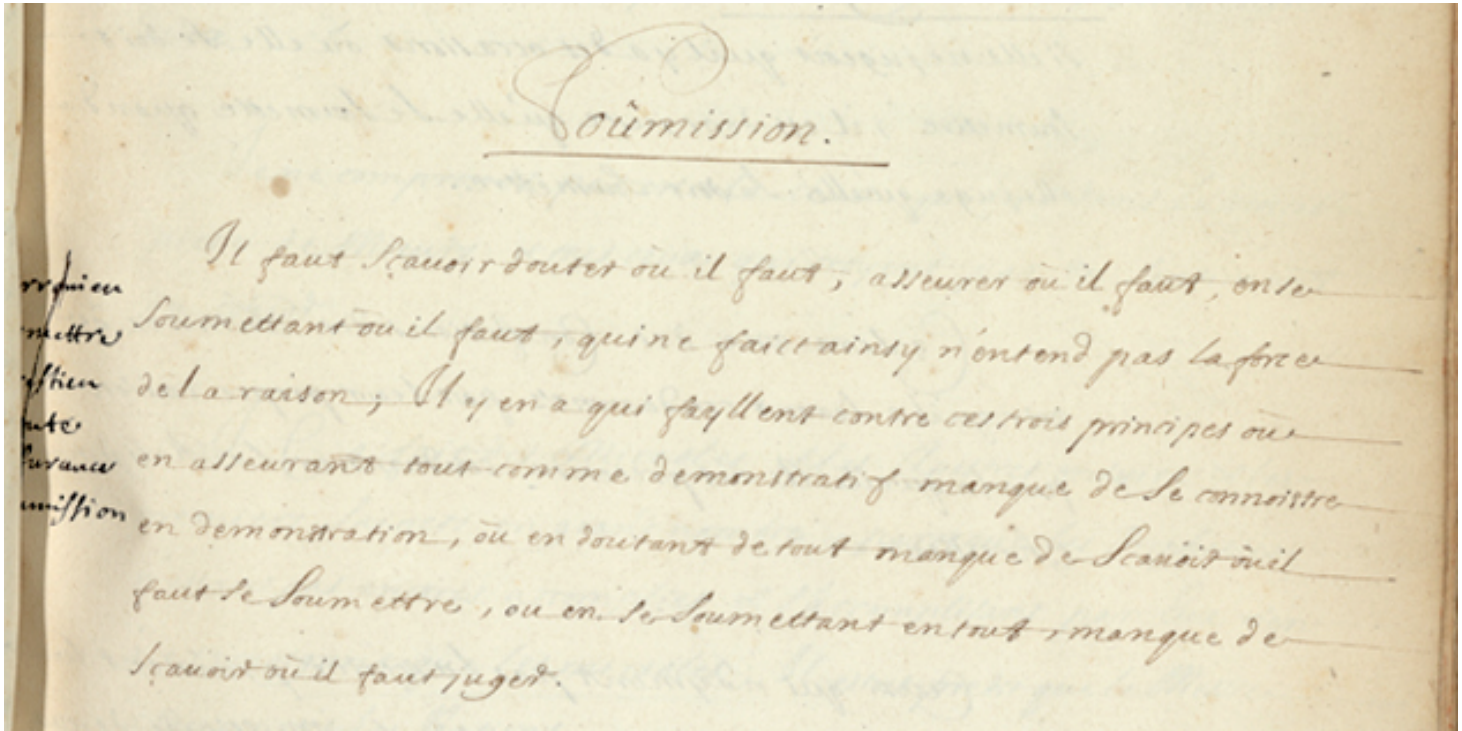 Soûmission.
Il faut Sçauoir douter où il faut, asseurer où il faut, en se
Soumettant où il faut, qui ne faict ainsy n'entend pas la force
de la raison; Il y en a qui fayllent contre ces trois principes ou
en asseurant tout comme demonstratif manque de Se connoistre
en demonstration, ou en doutant de tout manque de Scauoir où il
faut Se Soumettre, ou en Se Soumettant en tout, manque de
Sçauoir où il faut juger.
mettre